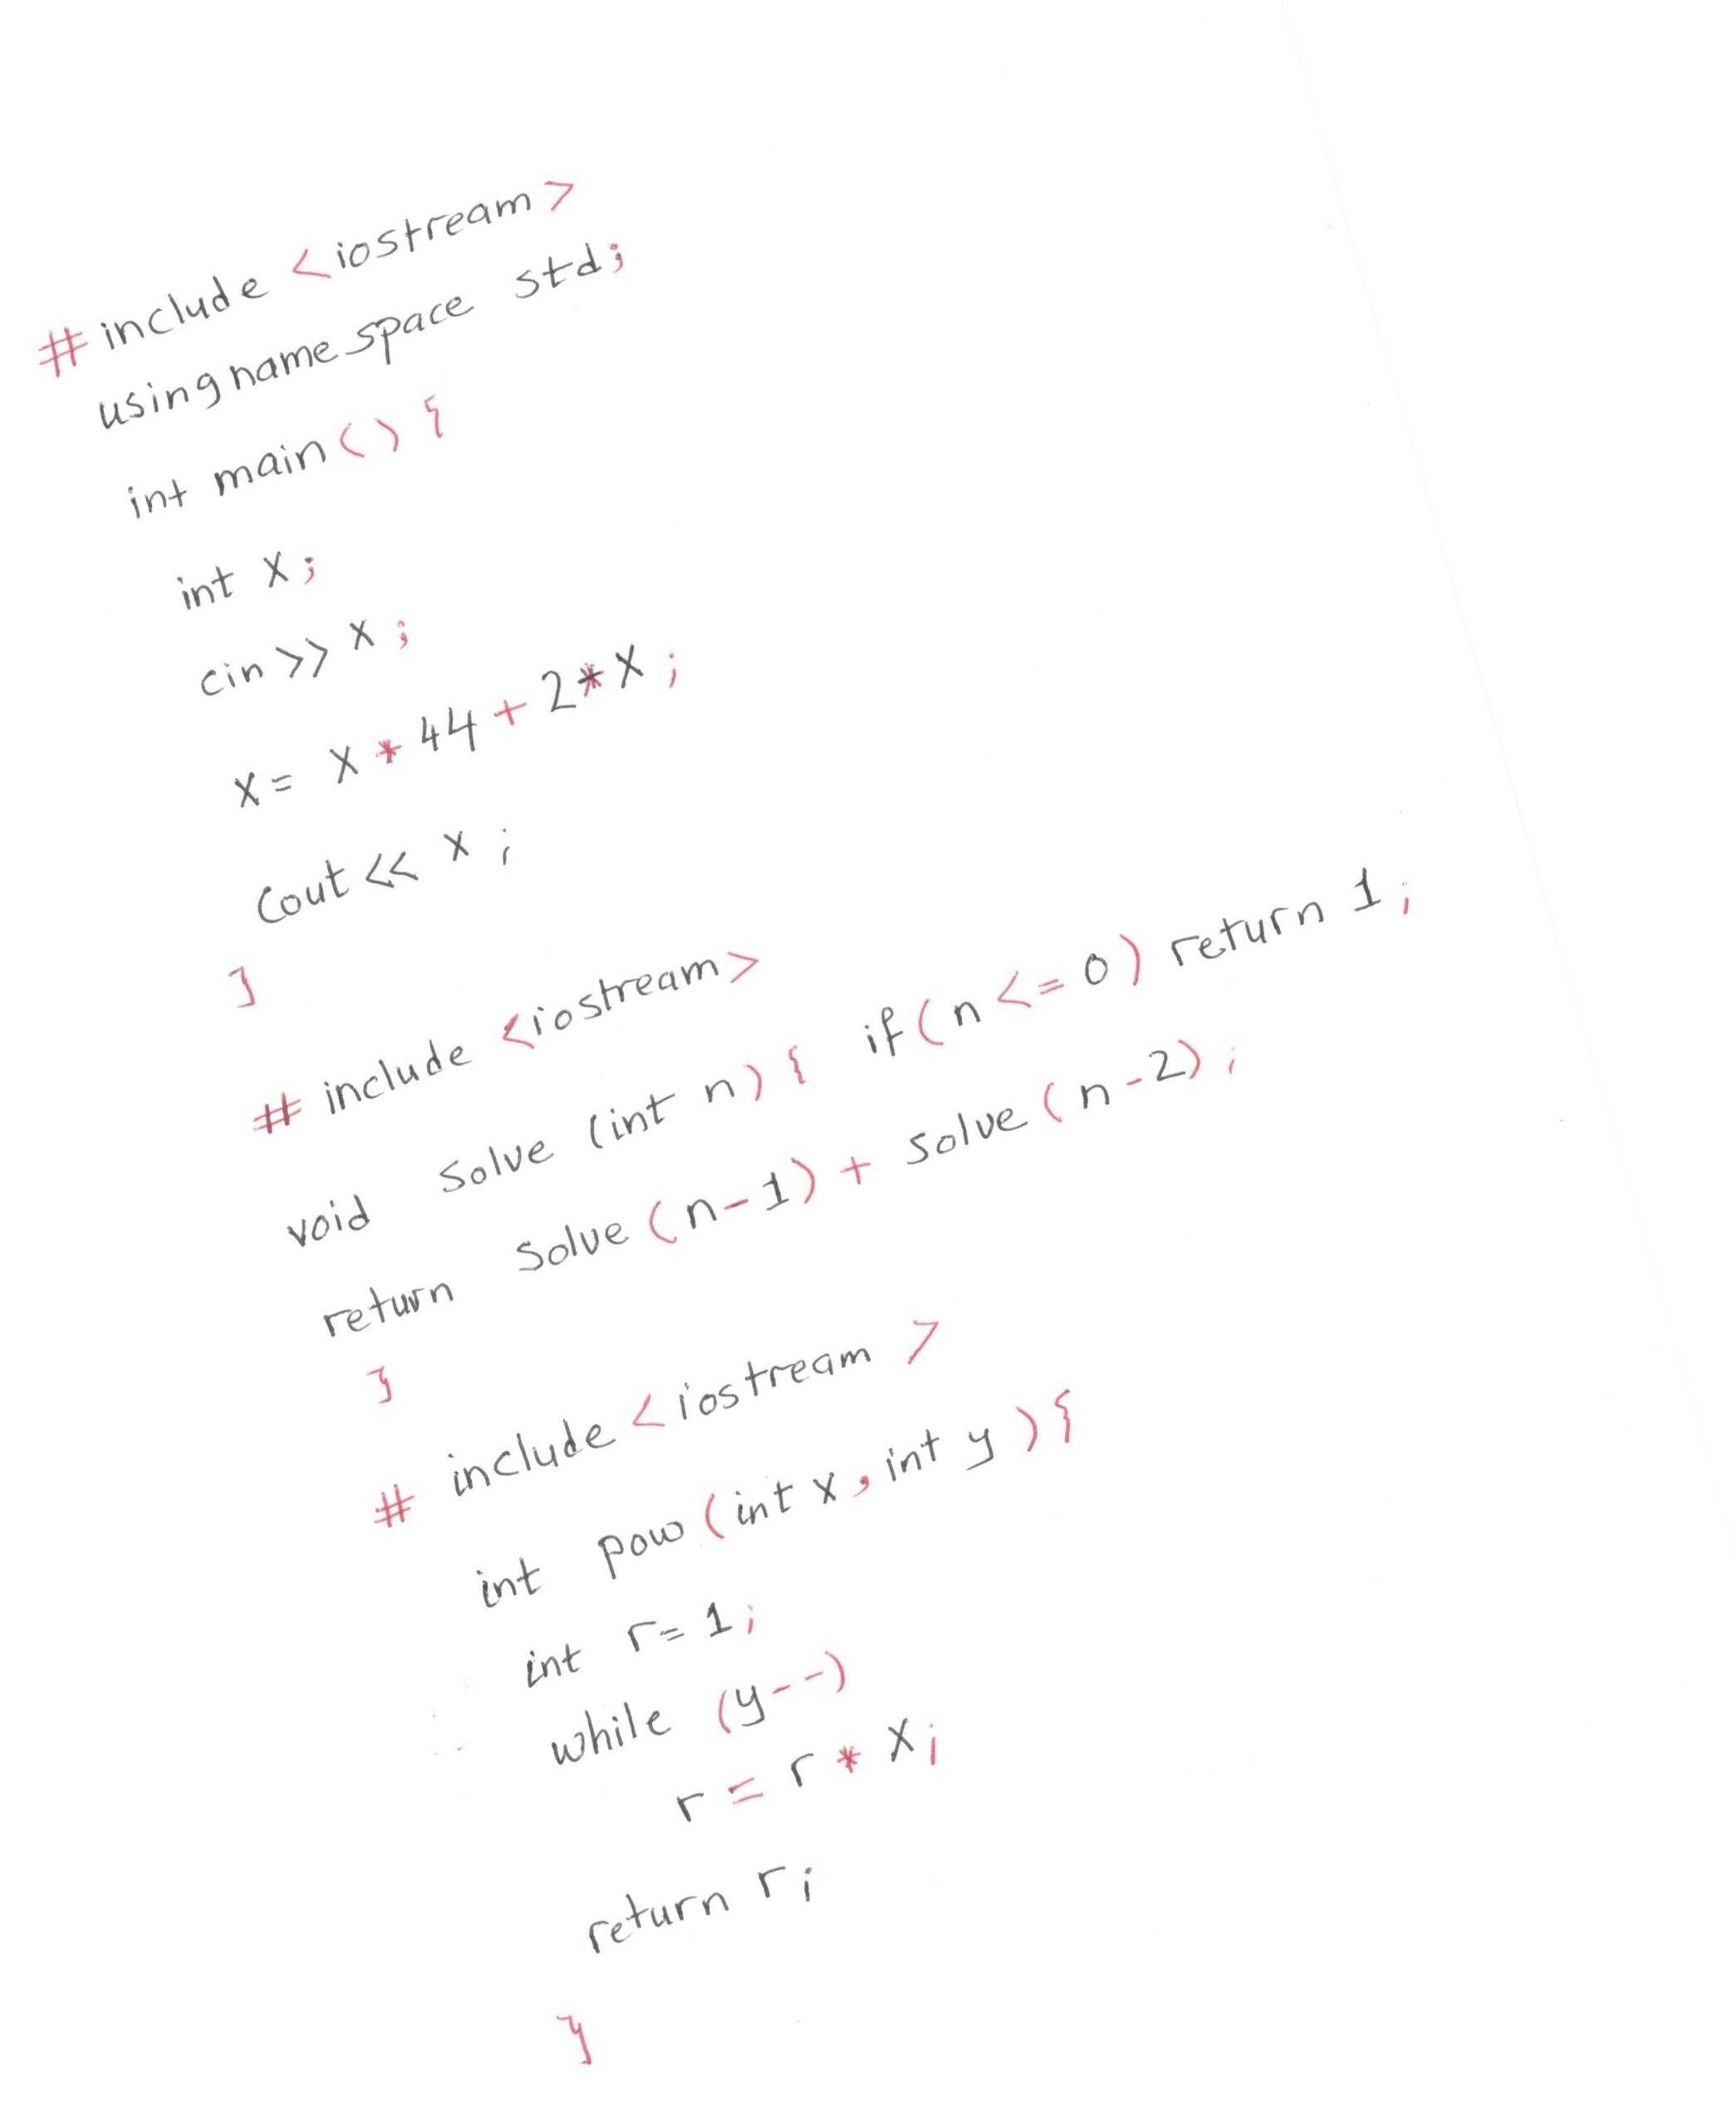 #include <iostream>
using namespace std;
int main() {
int x;
cin >> x;
x = x * 44 + 2 * x;
Cout << x;
}
# include <iostream>
void solve (int n) { if (n <= 0) return 1;
return solve (n-1) + solve (n-2);
}
# include <iostream>
int pow (int x, int y) {
int r = 1;
while (y--)
r = r * x;
return r;
}